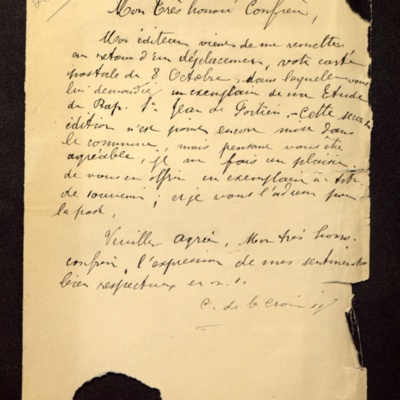 Mon très honoré Confrère,
Mon éditeur vient de me remettre,
au retour d'un déplacement, votre carte
postale du 8 Octobre, dans laquelle vous
lui demandiez un exemplaire de mon Etude
du Bap. St Jean de Poitiers. - Cette seconde
édition n'est point encore mise dans
le commerce, mais pensant vous être
agréable, je me fais un plaisir
de vous en offrir un exemplaire à titre
de souvenir, et je vous l'adresse par
la poste.
Veuillez agréer, Mon très honoré
confrère, l'expression de mes sentiments
bien respectueux
C. de la Croix